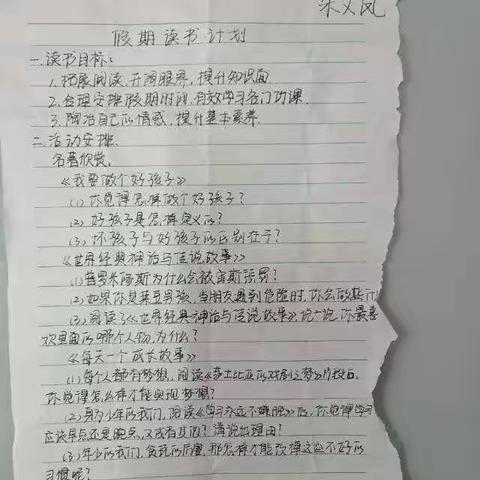 宋义凤
假期读书计划
一.读书目标:
1.拓展阅读,开阔眼界,提升知识面
2.合理安排假期时间,有效学习各门功课.
3.陶冶自己的情感,提升基本素养.
二.活动安排.
名著欣赏.
《我要做个好孩子》
(1)你觉得怎样做个好孩子?
(2)好孩子是怎样定义的?
(3)坏孩子与好孩子的区别在于?
《世界经典神话与传说故事》
(1)普罗米修斯为什么会被宙斯惩罚?
(2)如果你是莱豆男孩,当朋友遇到危险时,你会做些什
(3)阅读了《世界经典神话与传说故事》,说一说,你最喜
欢里面的哪个人物,为什么?
《每天一个成长故事》
(1)每个人都有梦想,阅读《莎士比亚的戏剧之梦》片段后,
你觉得怎么样才能实现梦想?
(2)身为少年的我们,阅读《学习永远不嫌晚》后,你觉得学习
应该早点还是晚点,又或有其的?请说出理由?
(3)年少的我们,贪玩的厉害,那怎样才能改掉这些不好的
习惯呢?